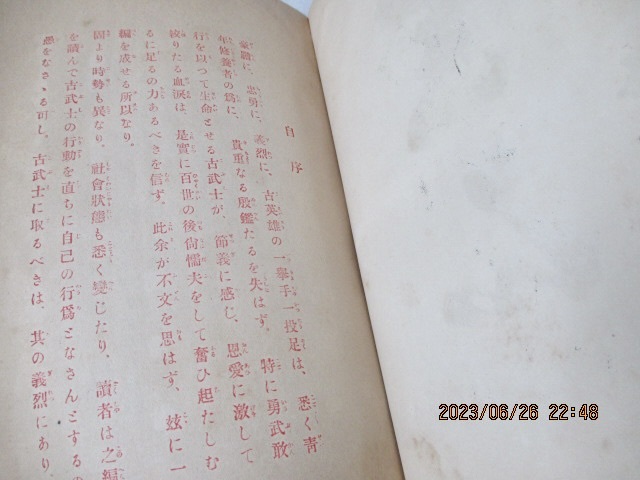 自序
豪膽に、忠勇に、義烈に、古英雄の一擧手一投足は、悉く靑
年修養者の爲に、貴重なる殷鑑たるを失はず。特に勇武敢
行を以つて生命とせる古武士が、節義に感じ、恩愛に激して
絞りたる血涙は、是實に百世の後尙懦夫をして奮ひ起たしむ
るに足るの力あるべきを信ず。此余が不文を思はず、玆に一
編を成せる所以なり。
固より時勢も異なり、社會狀態も悉く變じたり、讀者は之編
を讀んで古武士の行動を直ちに自己の行爲となさんとするの
愚をなさゞる可し。古武士に取るべきは、其の義烈にあり、
2023/06/26 22:48